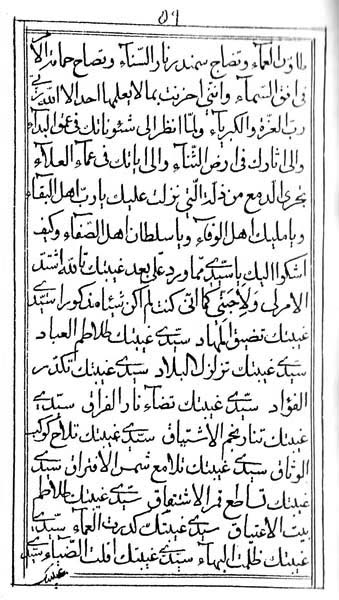 ٥٩
طاوس العماء وتصاح سمندر نار السنآء وتصاح حمامة الأمر
فی افق السمآء وانّنی احزنت بما لا يعلمها احد الا الله ربّی
ربّ العزّة والکبريآء ولما انظر الی شئوناتک فی عوالم البدآء
والی اثارک فی ارض الثنآء والی اياتک فی عمآء العلآء
يجری الدمع من ذلة التی نزلت عليک يا ربّ اهل البقآء
ويا مليک اهل الوفآء ويا سلطان اهل الصفآء وکيف
اشکوا اليک يا سيّدی ممّا ورد علیّ بعد غيبتک تالله اشتد
الامر لی ولاحبّتی کانّی کنت لم اکن شيئا مذکورا سيّدی
غيبتک تضيق المهاد سيّدی غيبتک طلاطم العباد
سيّدی غيبتک تزلزل البلاد سيّدی غيبتک تکدّر
الفؤاد سيّدی غيبتک تضآء نار الفراق سيّدی
غيبتک تنار نجم الاشتياق سيّدی غيبتک تلاح کوکب
الوثاق سيّدی غيبتک تلامع شمس الافتراق سيّدی
غيبتک تساطع قمر الاشتقاق سيّدی غيبتک طلاطم
بيت الاعتياق سيّدی غيبتک کدرت العمآء سيّدی
غيبتک ظلمت البهآء سيّدی غيبتک افلت الضيآء سيّدی
غيبتک